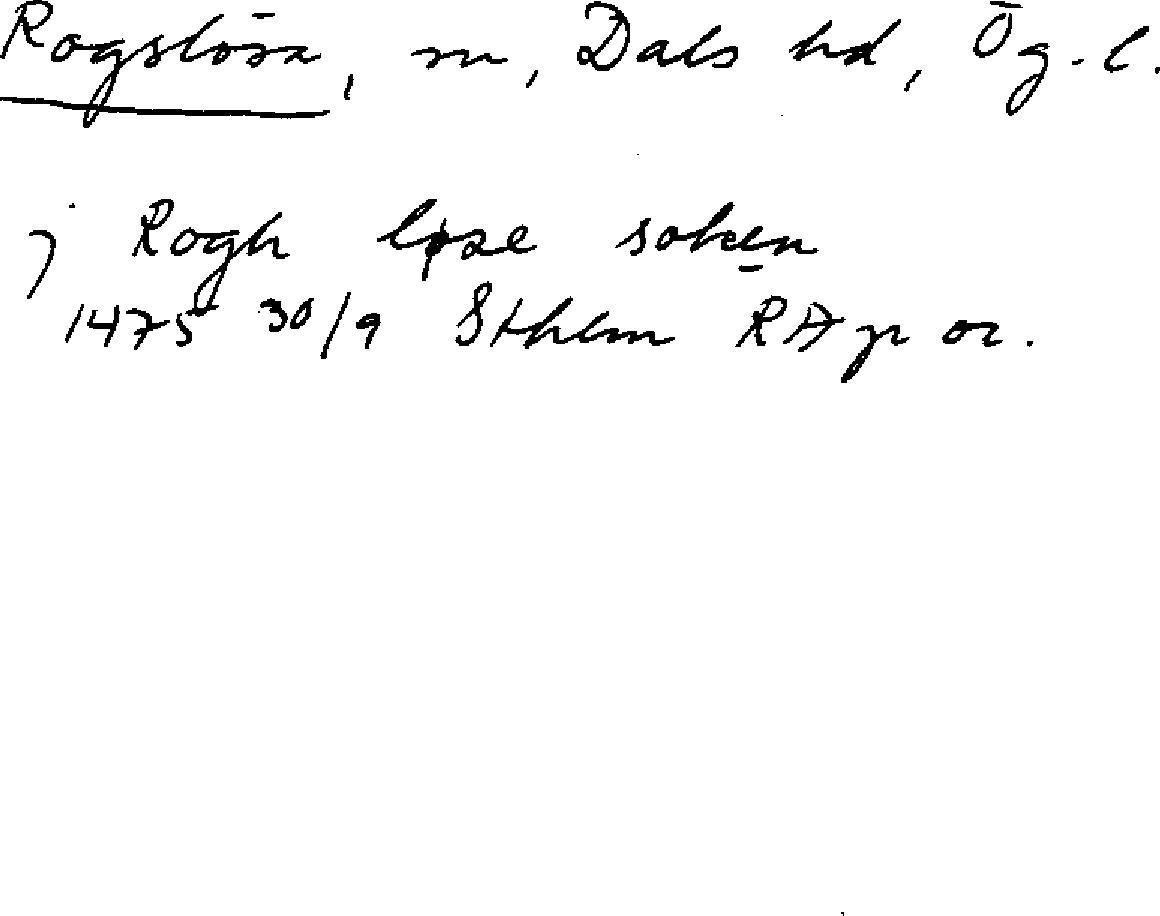 Rogslösa, sn, Dals hd, Ög. l.
j Rogh løse soken
1475 30/9 Sthlm RA p or.